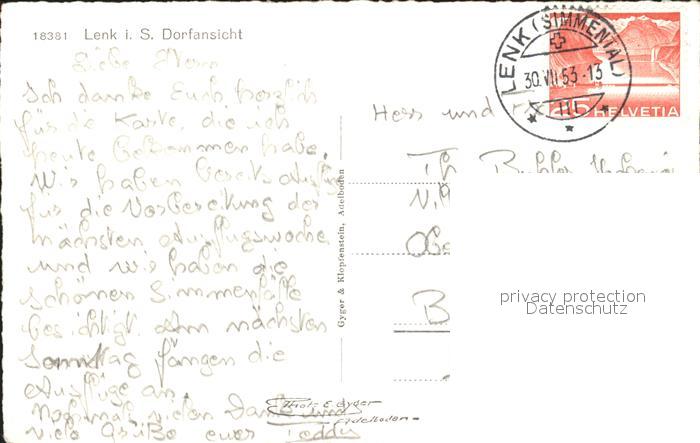 18381 Lenk i. S. Dorfansicht
Liebe Eltern
Ich danke Euch herzlich
für die Karte, die ich
heute bekommen habe.
Wir haben bereits Ausflüge
für die Vorbereitung der
nächsten Ausflugswoche
und wir haben die
schönen Simmenfälle
besichtigt. Am nächsten
Sonntag fangen die
Ausflüge an.
Nochmals vielen Dank und
viele Grüße euer Teddy
Gyger & Klopfenstein, Adelboden
Photo E. Gyger
Adelboden
LENK (SIMMENTAL)
30.VII.53-13
HELVETIA
Herr und
Th.
B
privacy protection
Datenschutz